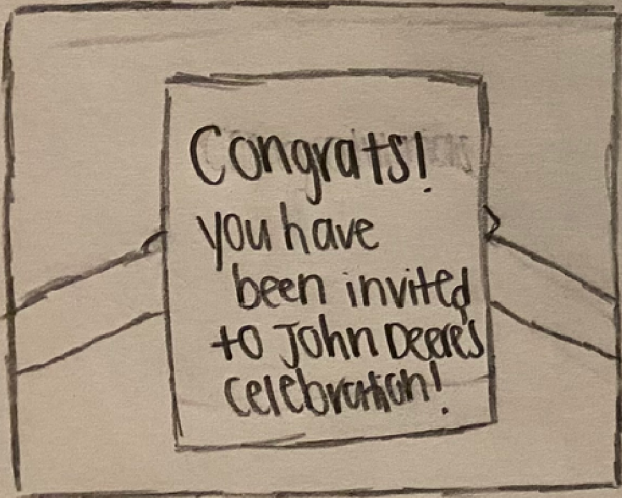 Congrats!
you have
been invited
to John Deere's
celebration!